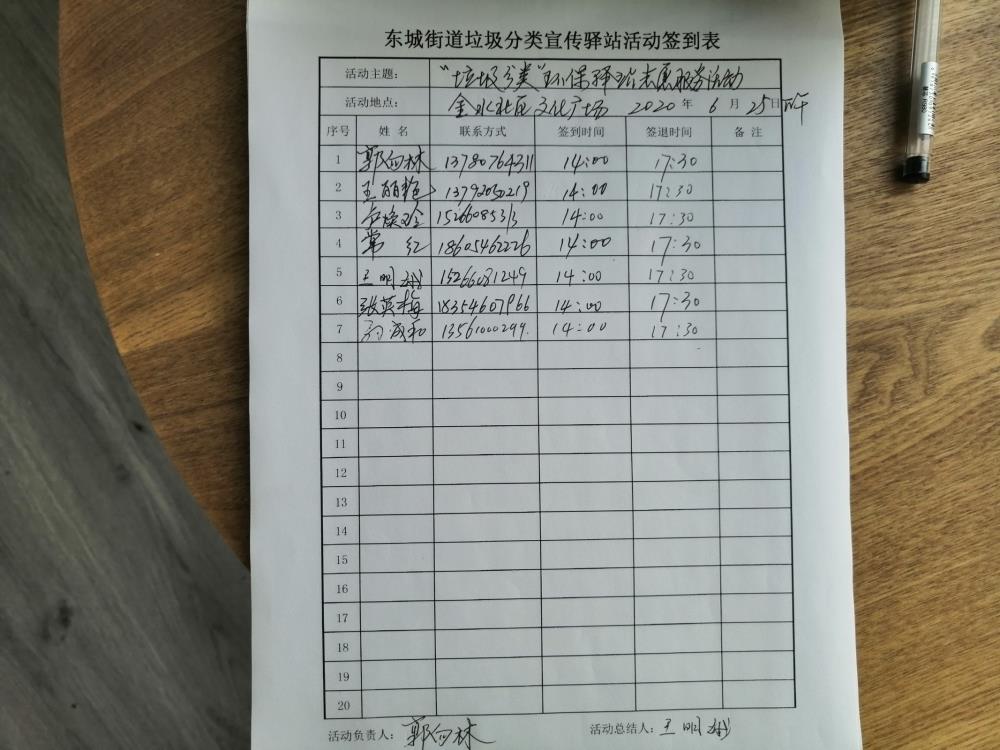 东城街道垃圾分类宣传驿站活动签到表
活动主题: "垃圾分类"环保驿站志愿服务活动
活动地点: 金水社区文化广场 2020年6月25日
序号 姓名 联系方式 签到时间 签退时间 备注
1 郭向林 13780764311 14:00 17:30
2 王丽艳 13792050219 14:00 17:30
3 14:00 17:30
4 常红 18605462226 14:00 17:30
5 王明 15266081249 14:00 17:30
6 张英梅 18354607966 14:00 17:30
7 13561000299. 14:00 17:30
8
9
10
11
12
13
14
15
16
17
18
19
20
活动负责人: 郭向林 活动总结人: 王明